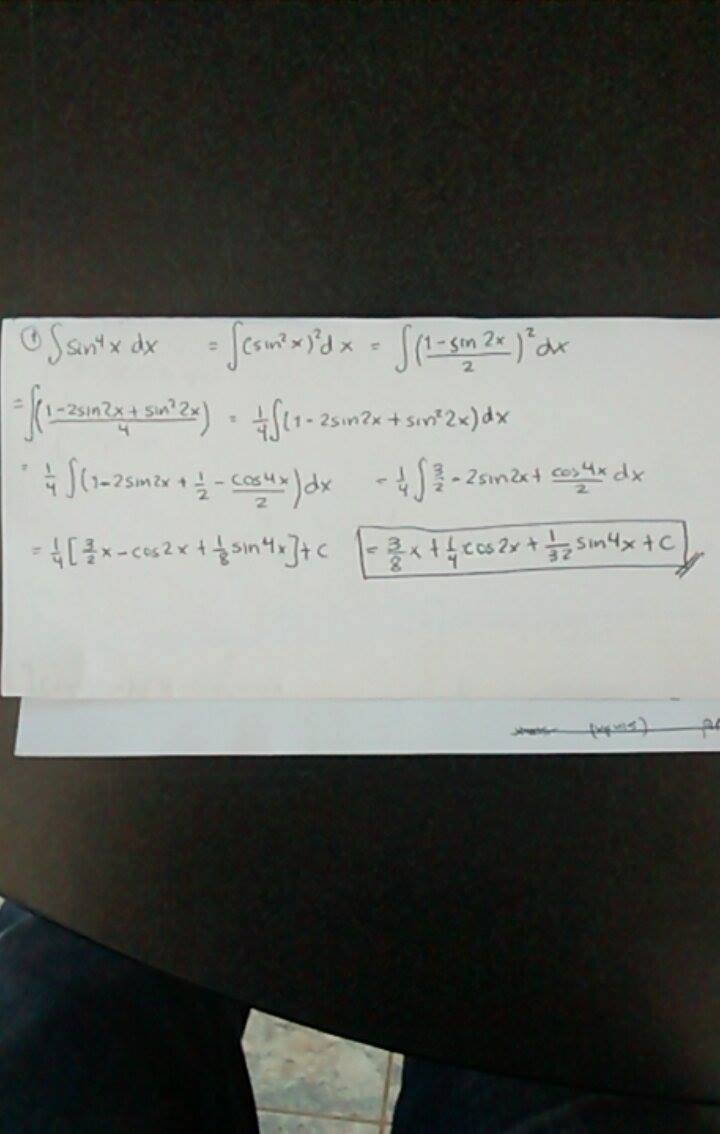 ① ∫ sin⁴x dx = ∫(sin²x)²dx = ∫((1-sin 2x)/2)² dx
= ∫((1-2sin2x + sin²2x)/4) = 1/4 ∫(1-2sin2x + sin²2x)dx
= 1/4 ∫(1-2sin2x + 1/2 - cos4x/2) dx = 1/4 ∫ 3/2 - 2sin2x + cos4x/2 dx
= 1/4 [3/2 x - cos2x + 1/8 sin4x] + c = 3/8 x + 1/4 cos2x + 1/32 sin4x + c